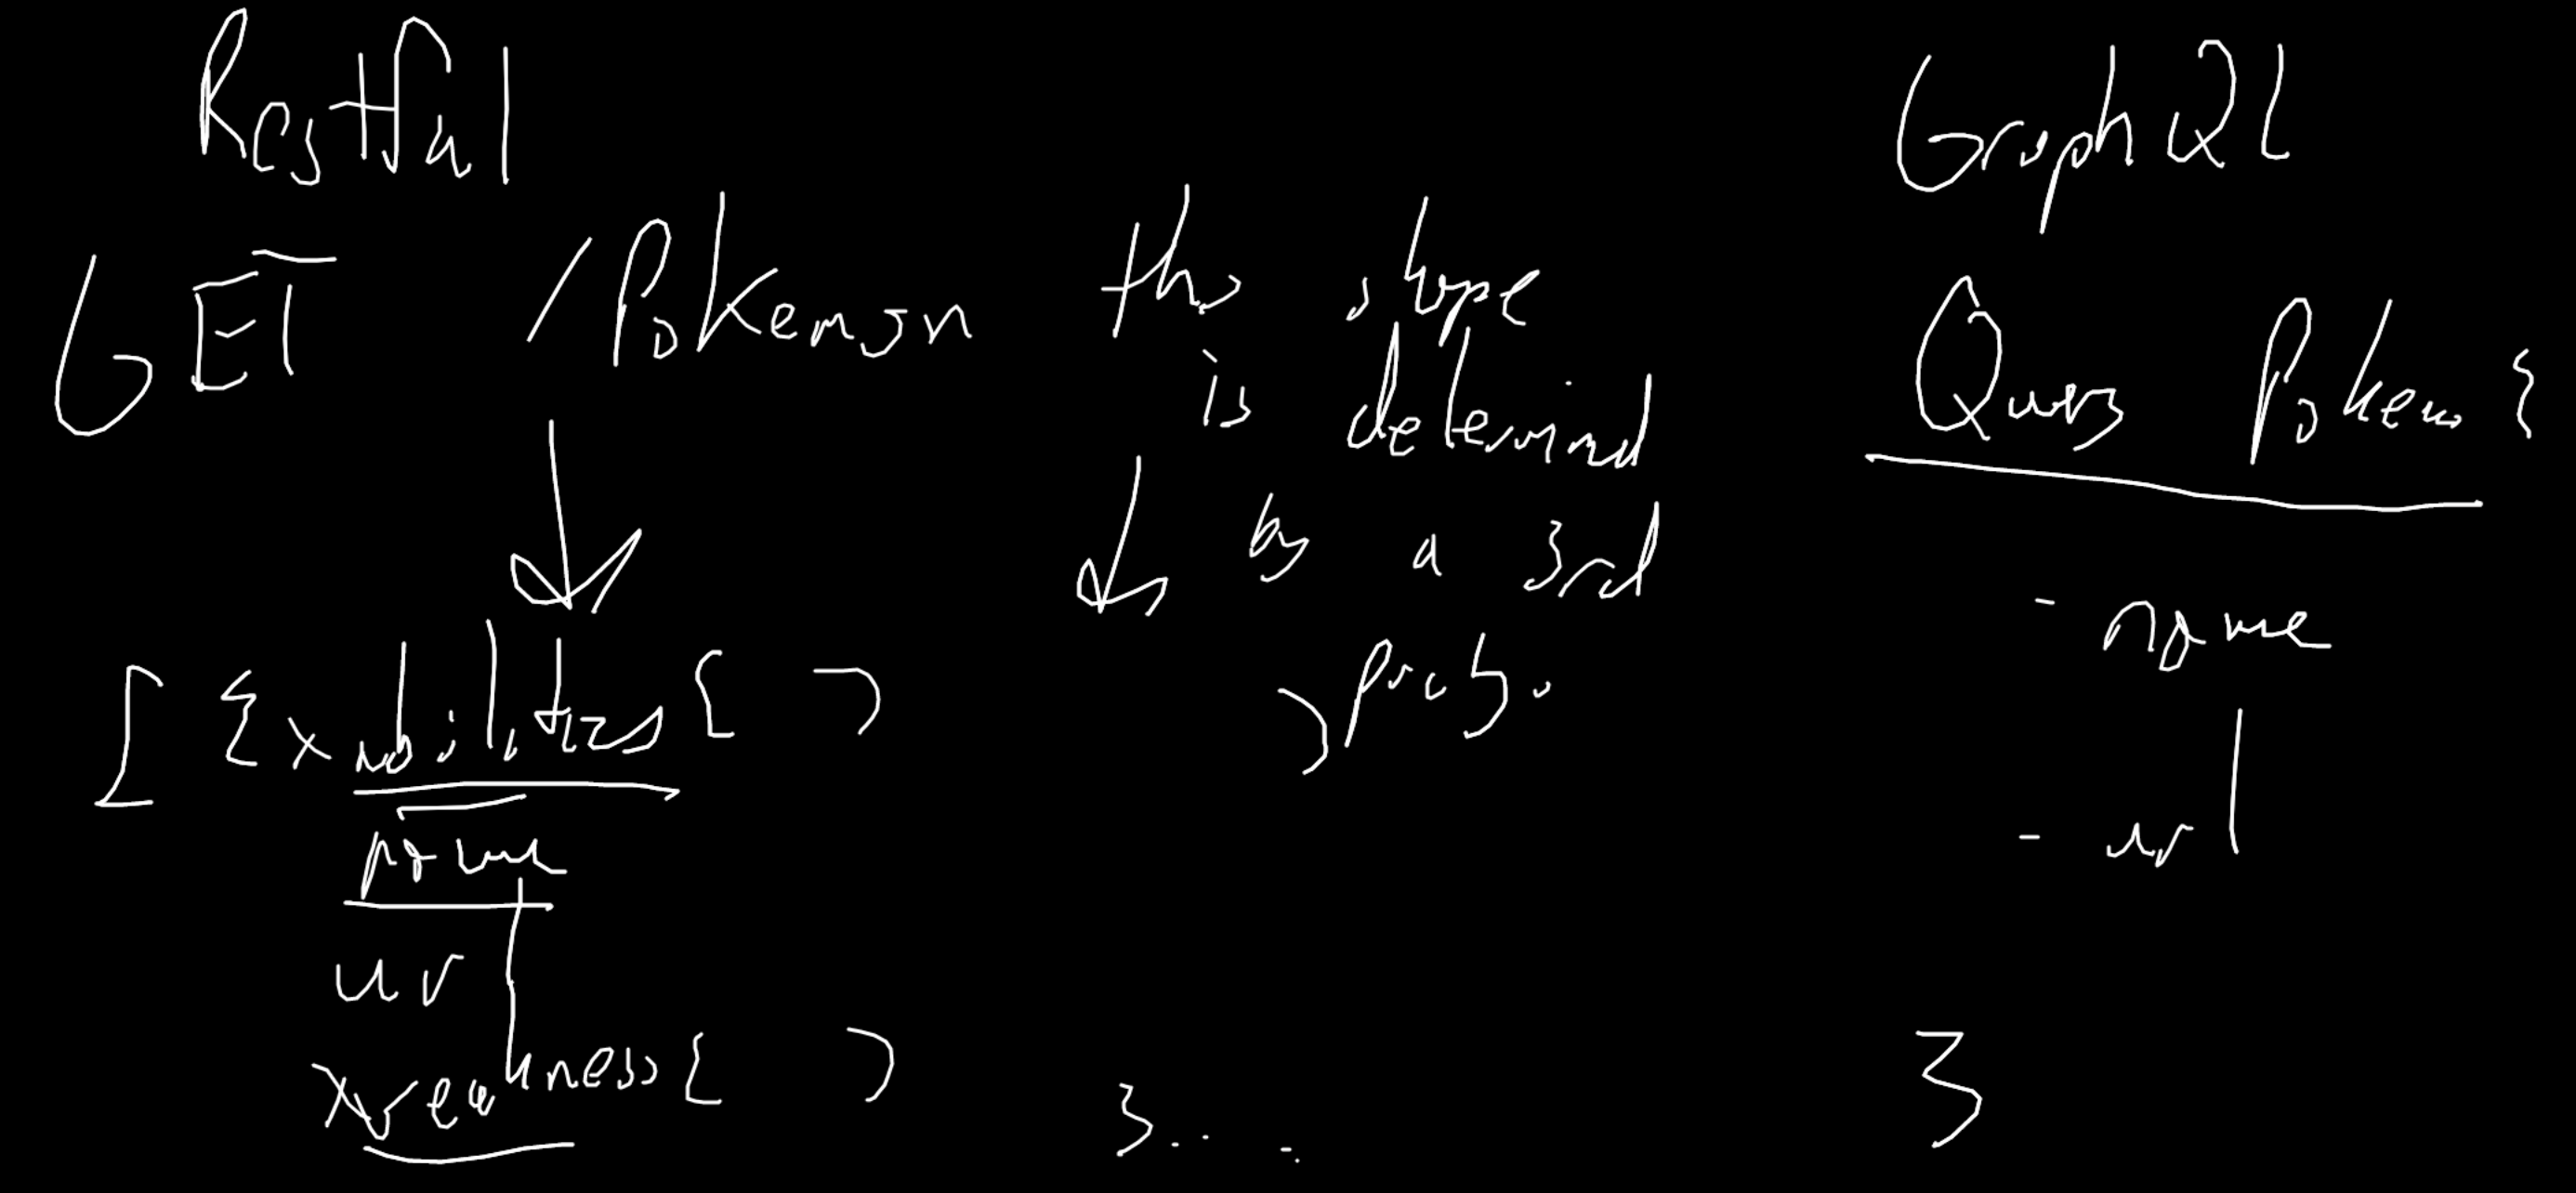 Restful
GET /Pokemon
[ {x abilities [ ]
name
url
x weakness [ ]
}....
this shape
is determind
by a 3rd
party.
GraphQL
Query Pokemon {
- name
- url
}